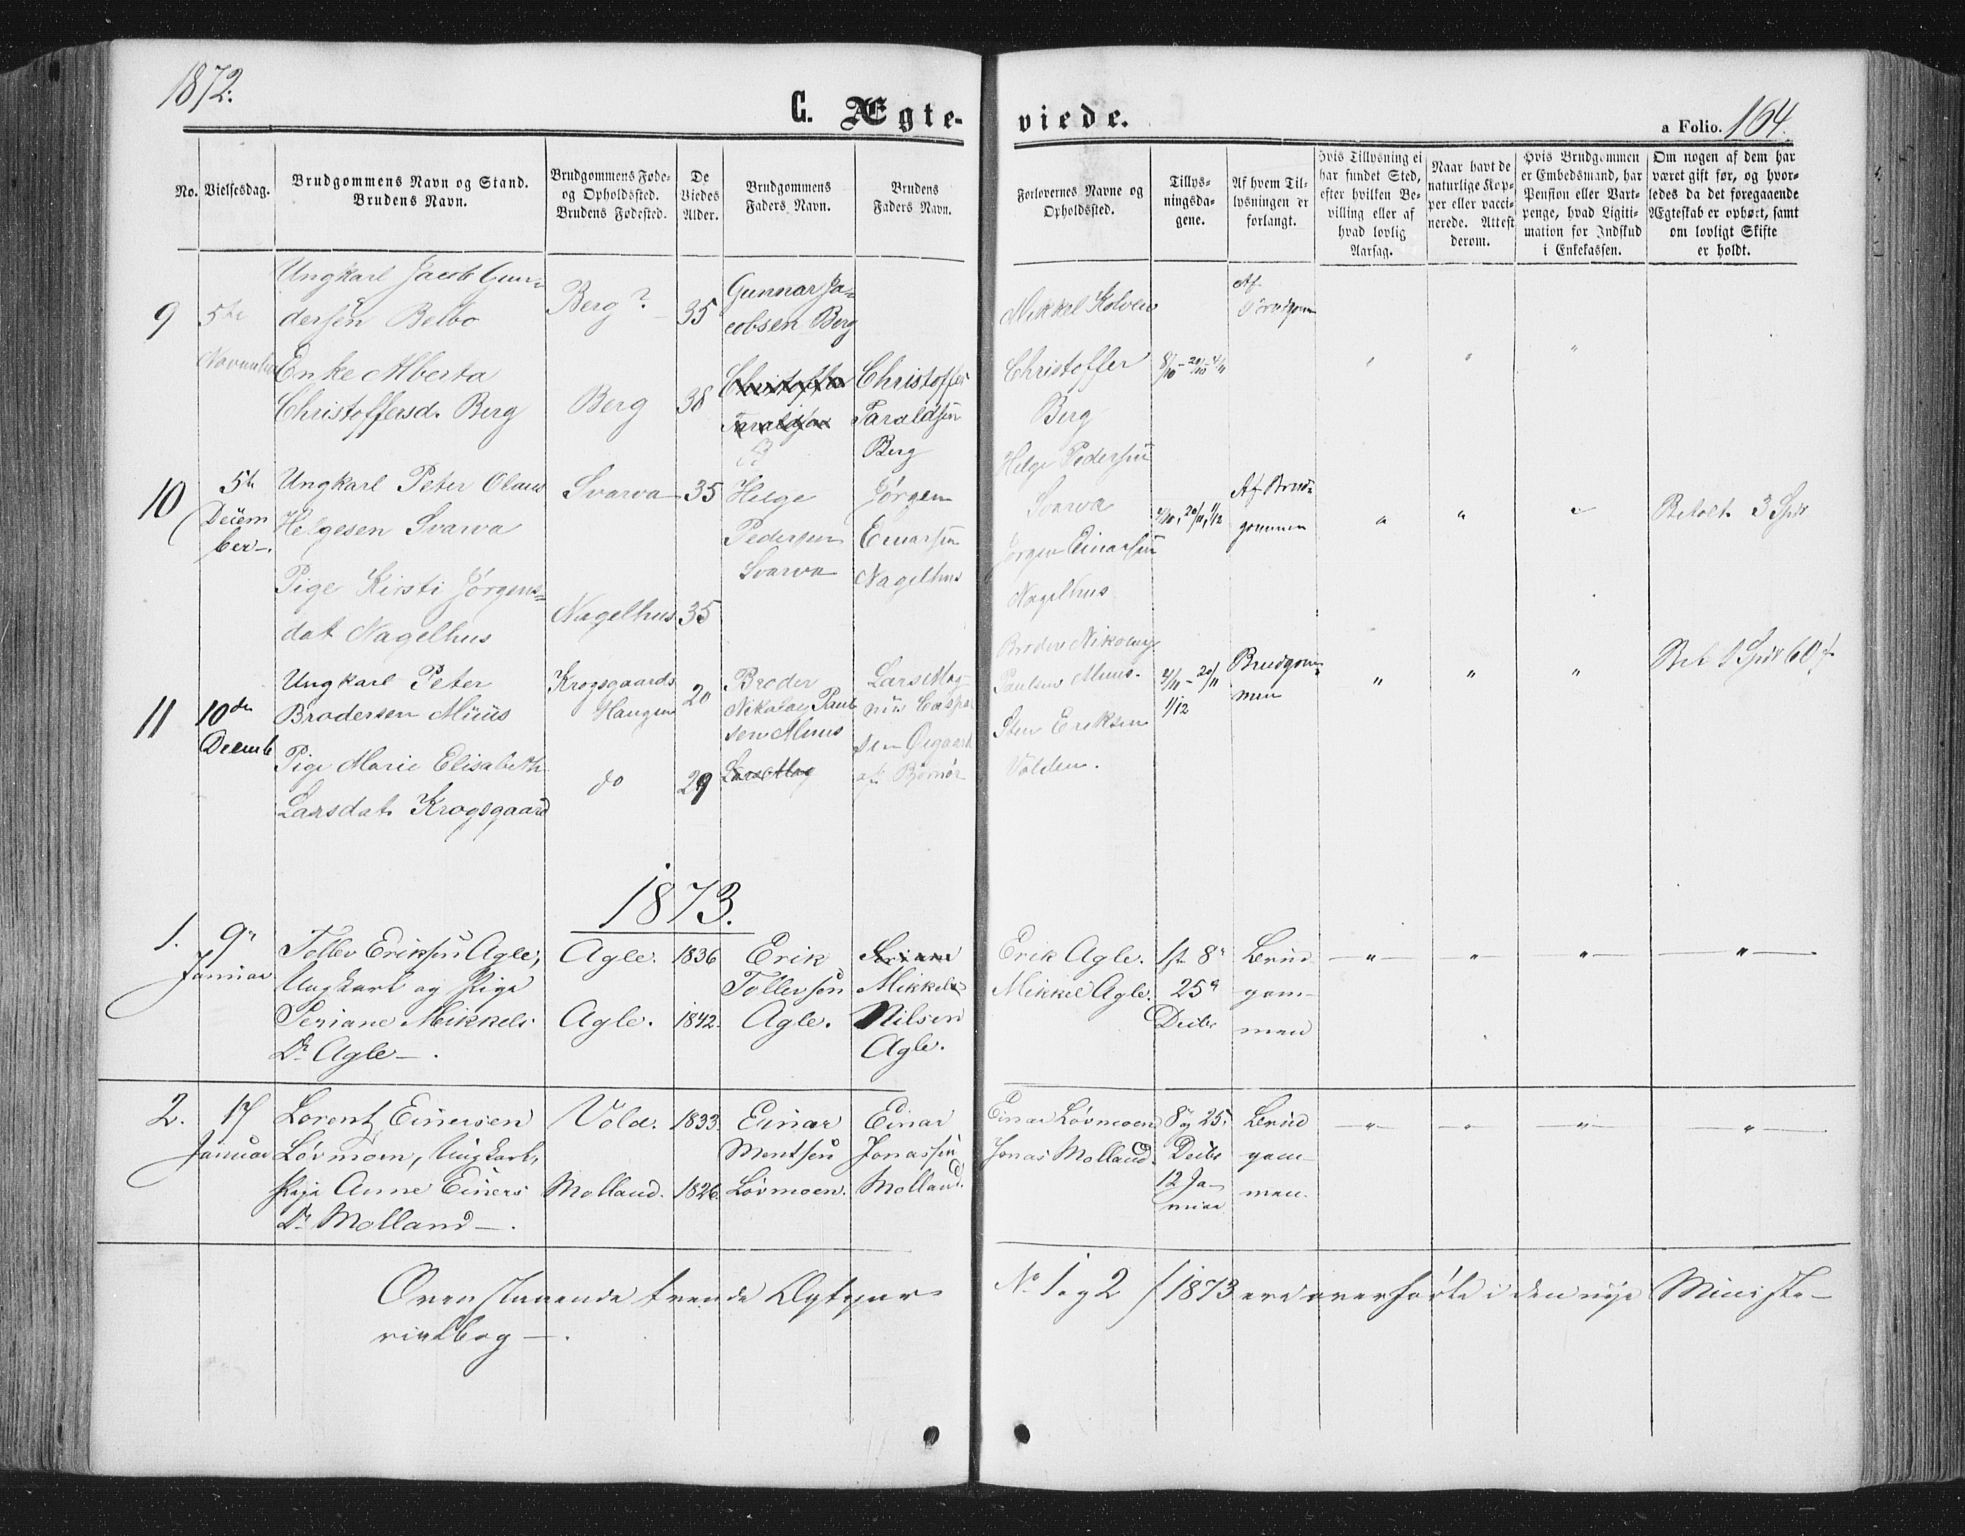 1872.
C. Ægte-
viede.
a Folio. 164.
No.
Vielsesdag.
Brudgommens Navn og Stand.
Brudens Navn.
Brudgommens Føde-
og Opholdssted.
Brudens Fødested.
De
Viedes
Alder.
Brudgommens
Faders Navn.
Brudens
Faders Navn.
Forlovernes Navne og
Opholdssted.
Tillys-
ningsda-
gene.
Af hvem Til-
lysningen er
forlangt.
Hvis Tillysning ei
har fundet Sted,
efter hvilken Be-
villing eller af
hvad lovlig
Aarsag.
Naar havt de
naturlige Kop-
per eller vacci-
nerede. Attest
derom.
Hvis Brudgommen
er Embedsmand, har
Pension eller Vart-
penge, hvad Ligiti-
mation for Indskud
i Enkekassen.
Om nogen af dem har
været gift før, og hvor-
ledes da det foregaaende
Ægteskab er ophørt, samt
om lovligt Skifte
er holdt.
9
5te
November
Ungkarl Jacob Gun-
dersen Belbo
Enke Alberta
Christoffersd. Berg
Berg?
Berg
35
38
Gunnar Ja-
cobsen Berg
Christoffer
Taraldsen
Christoffer
Taraldsen
Berg
Mikkel Kolven
Christoffer
Berg
8/10 - 20/10 -
Af
Brudgom
10
5te
Decem
ber
Ungkarl Peter Olaus
Helgesen Svarva
Pige Kirsti Jørgens-
dat Nagelhus
Svarva
Nagelhus
35
35
Helge
Pedersen
Svarva
Jørgen
Einarsen
Nagelhus
Helge Pedersen
Svarva
Jørgen Einarsen
Nagelhus
20/11, 1/12
Af Brud-
gommen
Betalt 3 Spd
11
10de
Decemb
Ungkarl Peter
Brodersen Müüs
Pige Marie Elisabeth
Larsdat. Krogsgaard
Krogsgaards
Haugen
do
20
29
Broder
Nikolai Paul
sen Muus
Lars Mag
Lars Mag-
nus Caspar
sen Øigaard
af Bjørnør
Broder Nikolay
Paulsen Muus.
Sten Eriksen
Volden.
20/11
1/12
Brudgom-
men
Bet 1 Spd 60 s
1873.
1.
9de
Januar
Tollev Eriksen Agle,
Ungkarl og Pige
Seriane Mikkels
Dr Agle.
Agle.
Agle.
1836
1842.
Erik
Tollevsen
Agle.
Mikkel
Nilsen
Agle.
Erik Agle.
Mikkel Agle.
1st 8de
25de
Decbr
Brud
gom-
men
2.
17
Januar
Lorentz Einersen
Løvmoen, Ungkarl,
Pige Anne Einers
Dr Molland.
Vold.
Molland.
1833.
1826.
Einar
Mentsen
Løvmoen.
Einar
Jonassen
Molland.
Einar Løvmoen
Jonas Molland.
8 og 25.
Decbr
12 Ja-
nuar
Brud
gom-
men.
Ovenstaaende tvende Ægtepar No 1 og 2 f 1873 ere overførte i den nye Ministe-
rialbog.